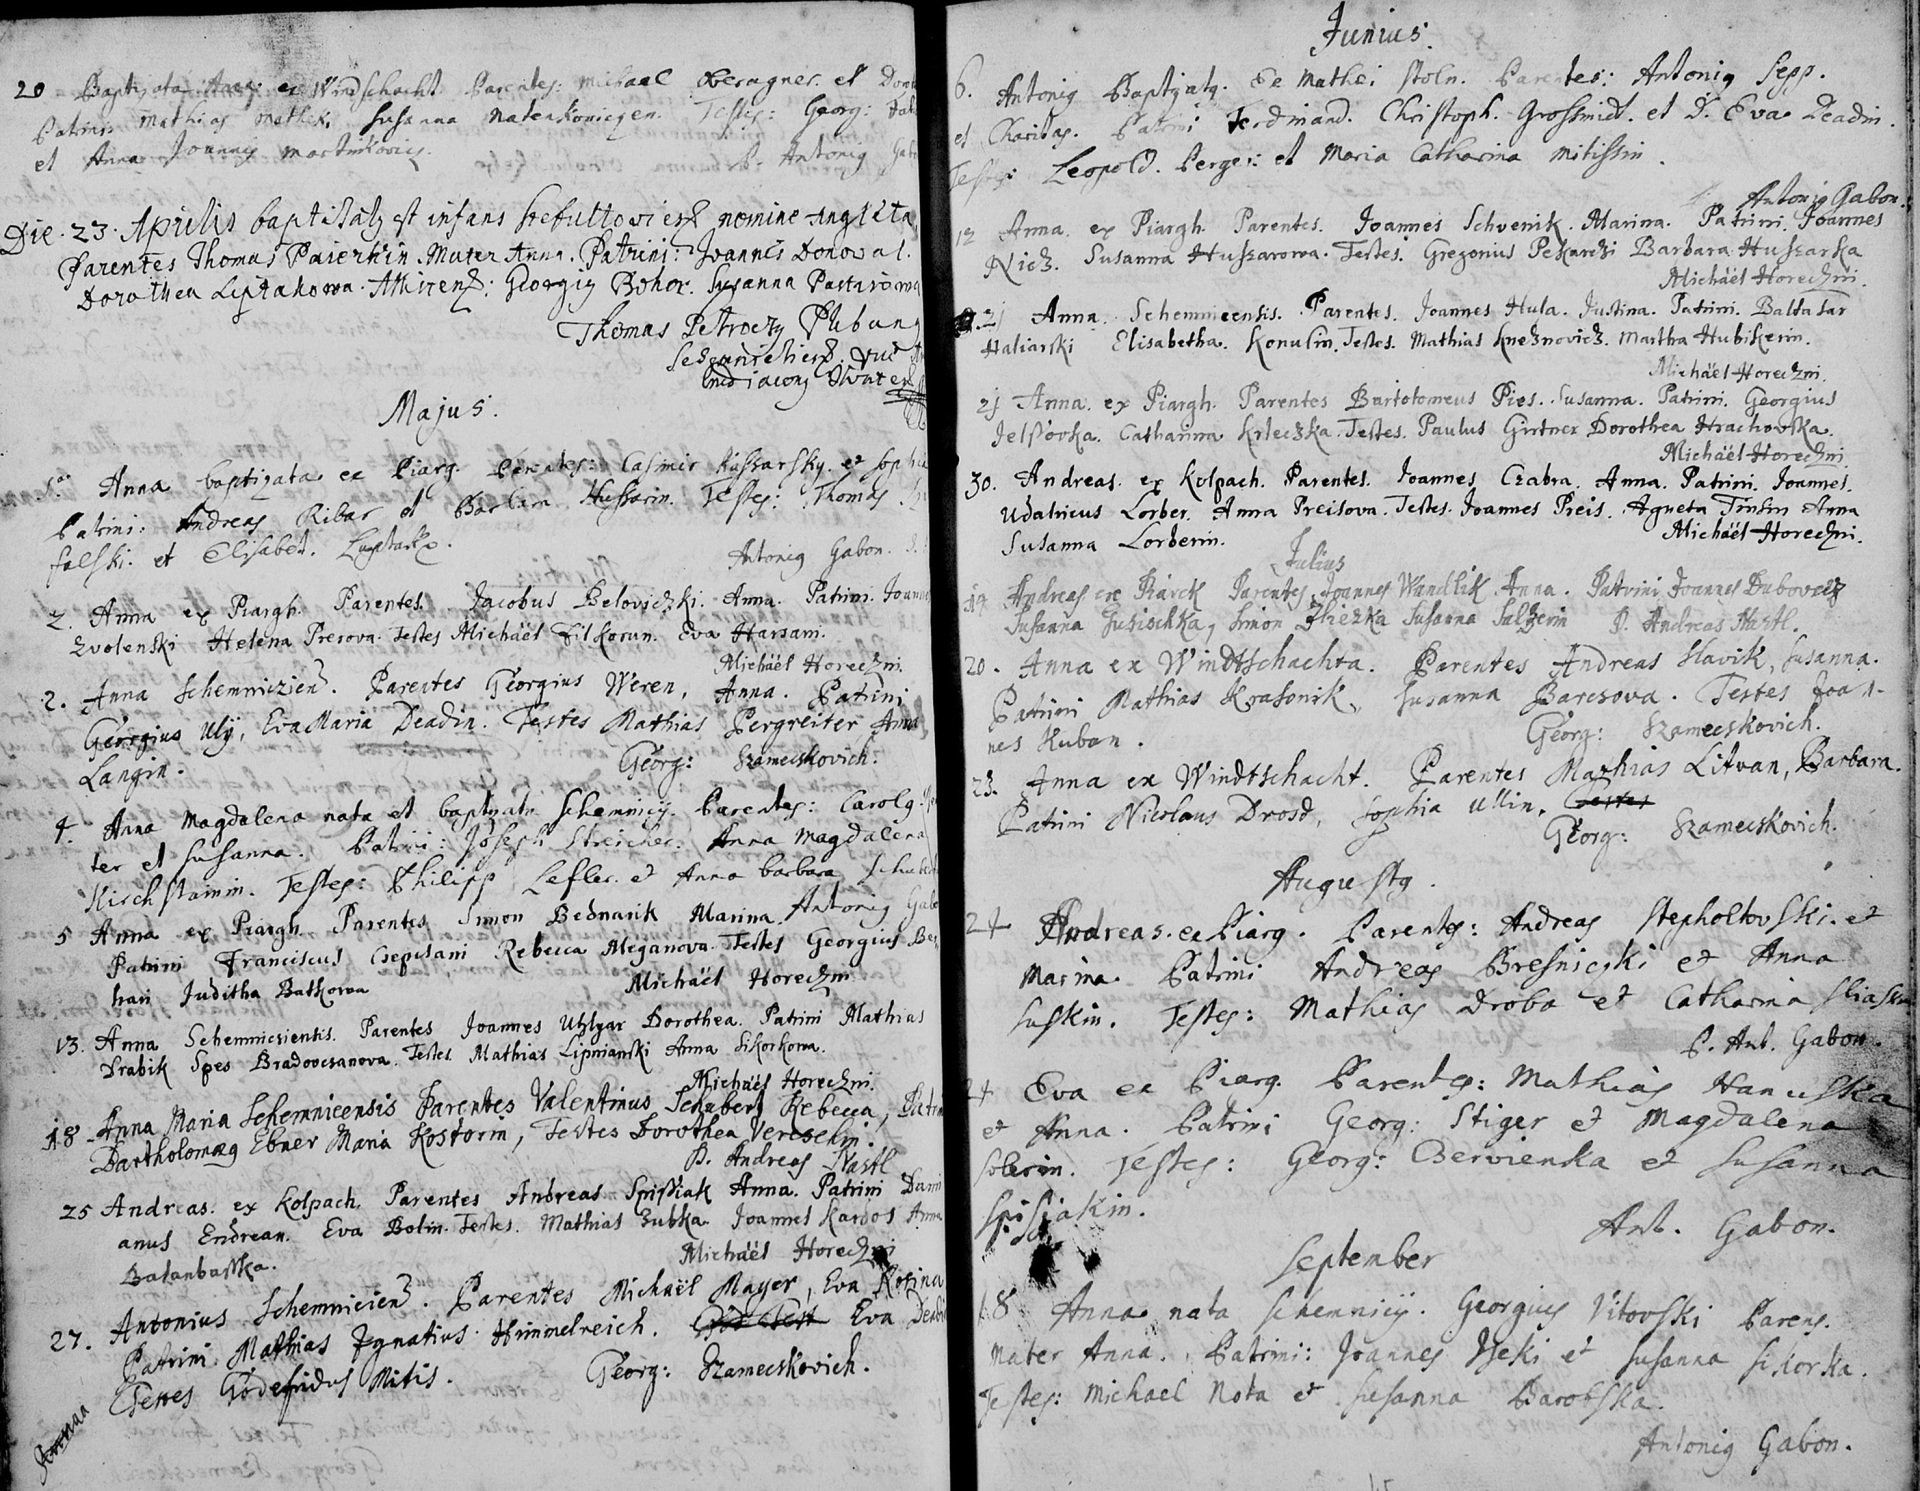 20 Baptizata Anna ex Windschacht Parentes: Michael Oberagner. et
Patrini Mathias Mathek, Susanna Natenkoviczen. Testes: Georg:
et Anna Joannes Martinkovics.
P. Antonig
Die. 23. Aprilis baptisatus est infans nomine
Parentes Thomas Mater Anna. Patrini: Joannes Donoval.
Dorothea Leptakowa. Georgig Bohor. Susanna
Thomas Petroczy Plebanus

Majus.
1a Anna baptizata ex Piarg Parentes: Casimir Kassarsky. et Sophia
Patrini: Andreas Ribar et Barbara Hussarin. Testes: Thomas
falski. et Elisabet.
Antonig Gabon.
2. Anna ex Piargh. Parentes. Jacobus Beloviczki. Anna. Patrini. Joannes
Zvolenski Helena Presova. Testes Michaël Filkorun. Eva Harsani.
Michaël Horeczni.
2. Anna Schemniczien. Parentes Georgius Weren, Anna. Patrini
Georgius Uly, Eva Maria Deadin. Testes Mathias Pergreiter, Anna
Langin.
Georg: Szameczkovich.
4. Anna Magdalena nata et baptizata Schemnicij. Parentes: Carolg
ter et Susanna. Patrini: Joseph Streicher. Anna Magdalena
Kirchstainin. Testes: Philipp Lefler. et Anna Barbara
Antonig
5 Anna ex Piargh Parentes Simon Bednarik Marina.
Patrini Franciscus Csepesani Rebecca Miganova. Testes Georgius
hari Juditha Batkowa
Michaël Horeczni
13. Anna Schemnicsiensis. Parentes Joannes Uhlyar Dorothea. Patrini Mathias
Drabik Spes Bradovesanova. Testes Mathias Lipnianski Anna Sikorkowa.
Michaël Horeczni.
18. Anna Maria Schemnicensis Parentes Valentinus Schubert Rebecca,
Bartholomæg Ebner Maria Kostorin, Testes Dorothea
P. Andreas Nastl
25 Andreas. ex Kolpach. Parentes Andreas Spissiak Anna. Patrini Dami
anus Endrean. Eva Bolin. Testes. Mathias Zubka. Joannes Kardos Anna
Balanbasska.
Michaël Horeczni
27. Antonius Schemnicien. Parentes Michaël Mayer, Eva Rosina
Patrini. Mathias Ignatius Himmelreich. Eva
Testes Godefridus Mitis.
Georg: Szameczkovich.

Junius.
6. Antonig Baptizatg. Ex Mathei Stoln. Parentes: Antonig Sepp.
et Charitas. Patrini Ferdinand. Christoph. Grossmidt. et D. Eva Deadin.
Testes: Leopold. Perger: et Maria Catharina Mitissin.
Antonig Gabon.
12 Anna ex Piargh Parentes. Joannes Schvenik. Marina. Patrini. Joannes
Nicz. Susanna Huszarowa. Testes. Gregorius Pekarczki Barbara Huszarka
Michäel Horeczni.
21 Anna. Schemnicensis. Parentes. Joannes Hula. Justina. Patrini. Baltasar
Haliarski Elisabetha. Konusin. Testes. Mathias Kneznovicz. Martha Hubikerin.
Michäel Horeczni.
21 Anna. ex Piargh. Parentes Bartolomeus Pies. Susanna. Patrini. Georgius
Jelssovka. Catharina Krleczka. Testes. Paulus Girtner Dorothea Hrachovska.
Michäel Horeczni
30. Andreas. ex Kolpach. Parentes. Joannes Czabra. Anna. Patrini. Joannes.
Udalricus Lorber. Anna Preisova. Testes. Joannes Preis. Agneta Tinsin Anna
Susanna Lorberin.
Michäel Horeczni.
Julius
19 Andreas ex Piarck Parentes Joannes Wandlik Anna. Patrini Joannes Dubovecz
Susanna Gusischka, Simon Susanna Salzerin P. Andreas Nastl.
20. Anna ex Windtschachta. Parentes Andreas Slavik, Susanna.
Patrini Mathias Krasonik, Susanna Baresova. Testes Joan-
nes Kuban.
Georg: Szameczkovich.
23. Anna ex Windtschacht. Parentes Mathias Litvan, Barbara.
Patrini Nicolaus Drosd, Sophia Ullin. Testes
Georg: Szameczkovich.
Augustg.
24 Andreas. ex Piarg. Parentes: Andreas Stepholtovski. et
Marina. Patrini Andreas Bresnicski et Anna
Suskin. Testes: Mathias Droba et Catharina
P. Ant. Gabon.
24 Eva ex Piarg. Parentes: Mathias Hanuska
et Anna. Patrini Georg: Stiger et Magdalena
Solerin. Testes: Georg: Cervienka et Susanna
Spissiakin.
Ant. Gabon.
September
18 Anna nata Schemnicij. Georgius Vitovski Parens.
Mater Anna. Patrini: Joannes Iseki et Susanna Sikorka.
Testes: Michael Nota et Susanna Barobska.
Antonig Gabon.